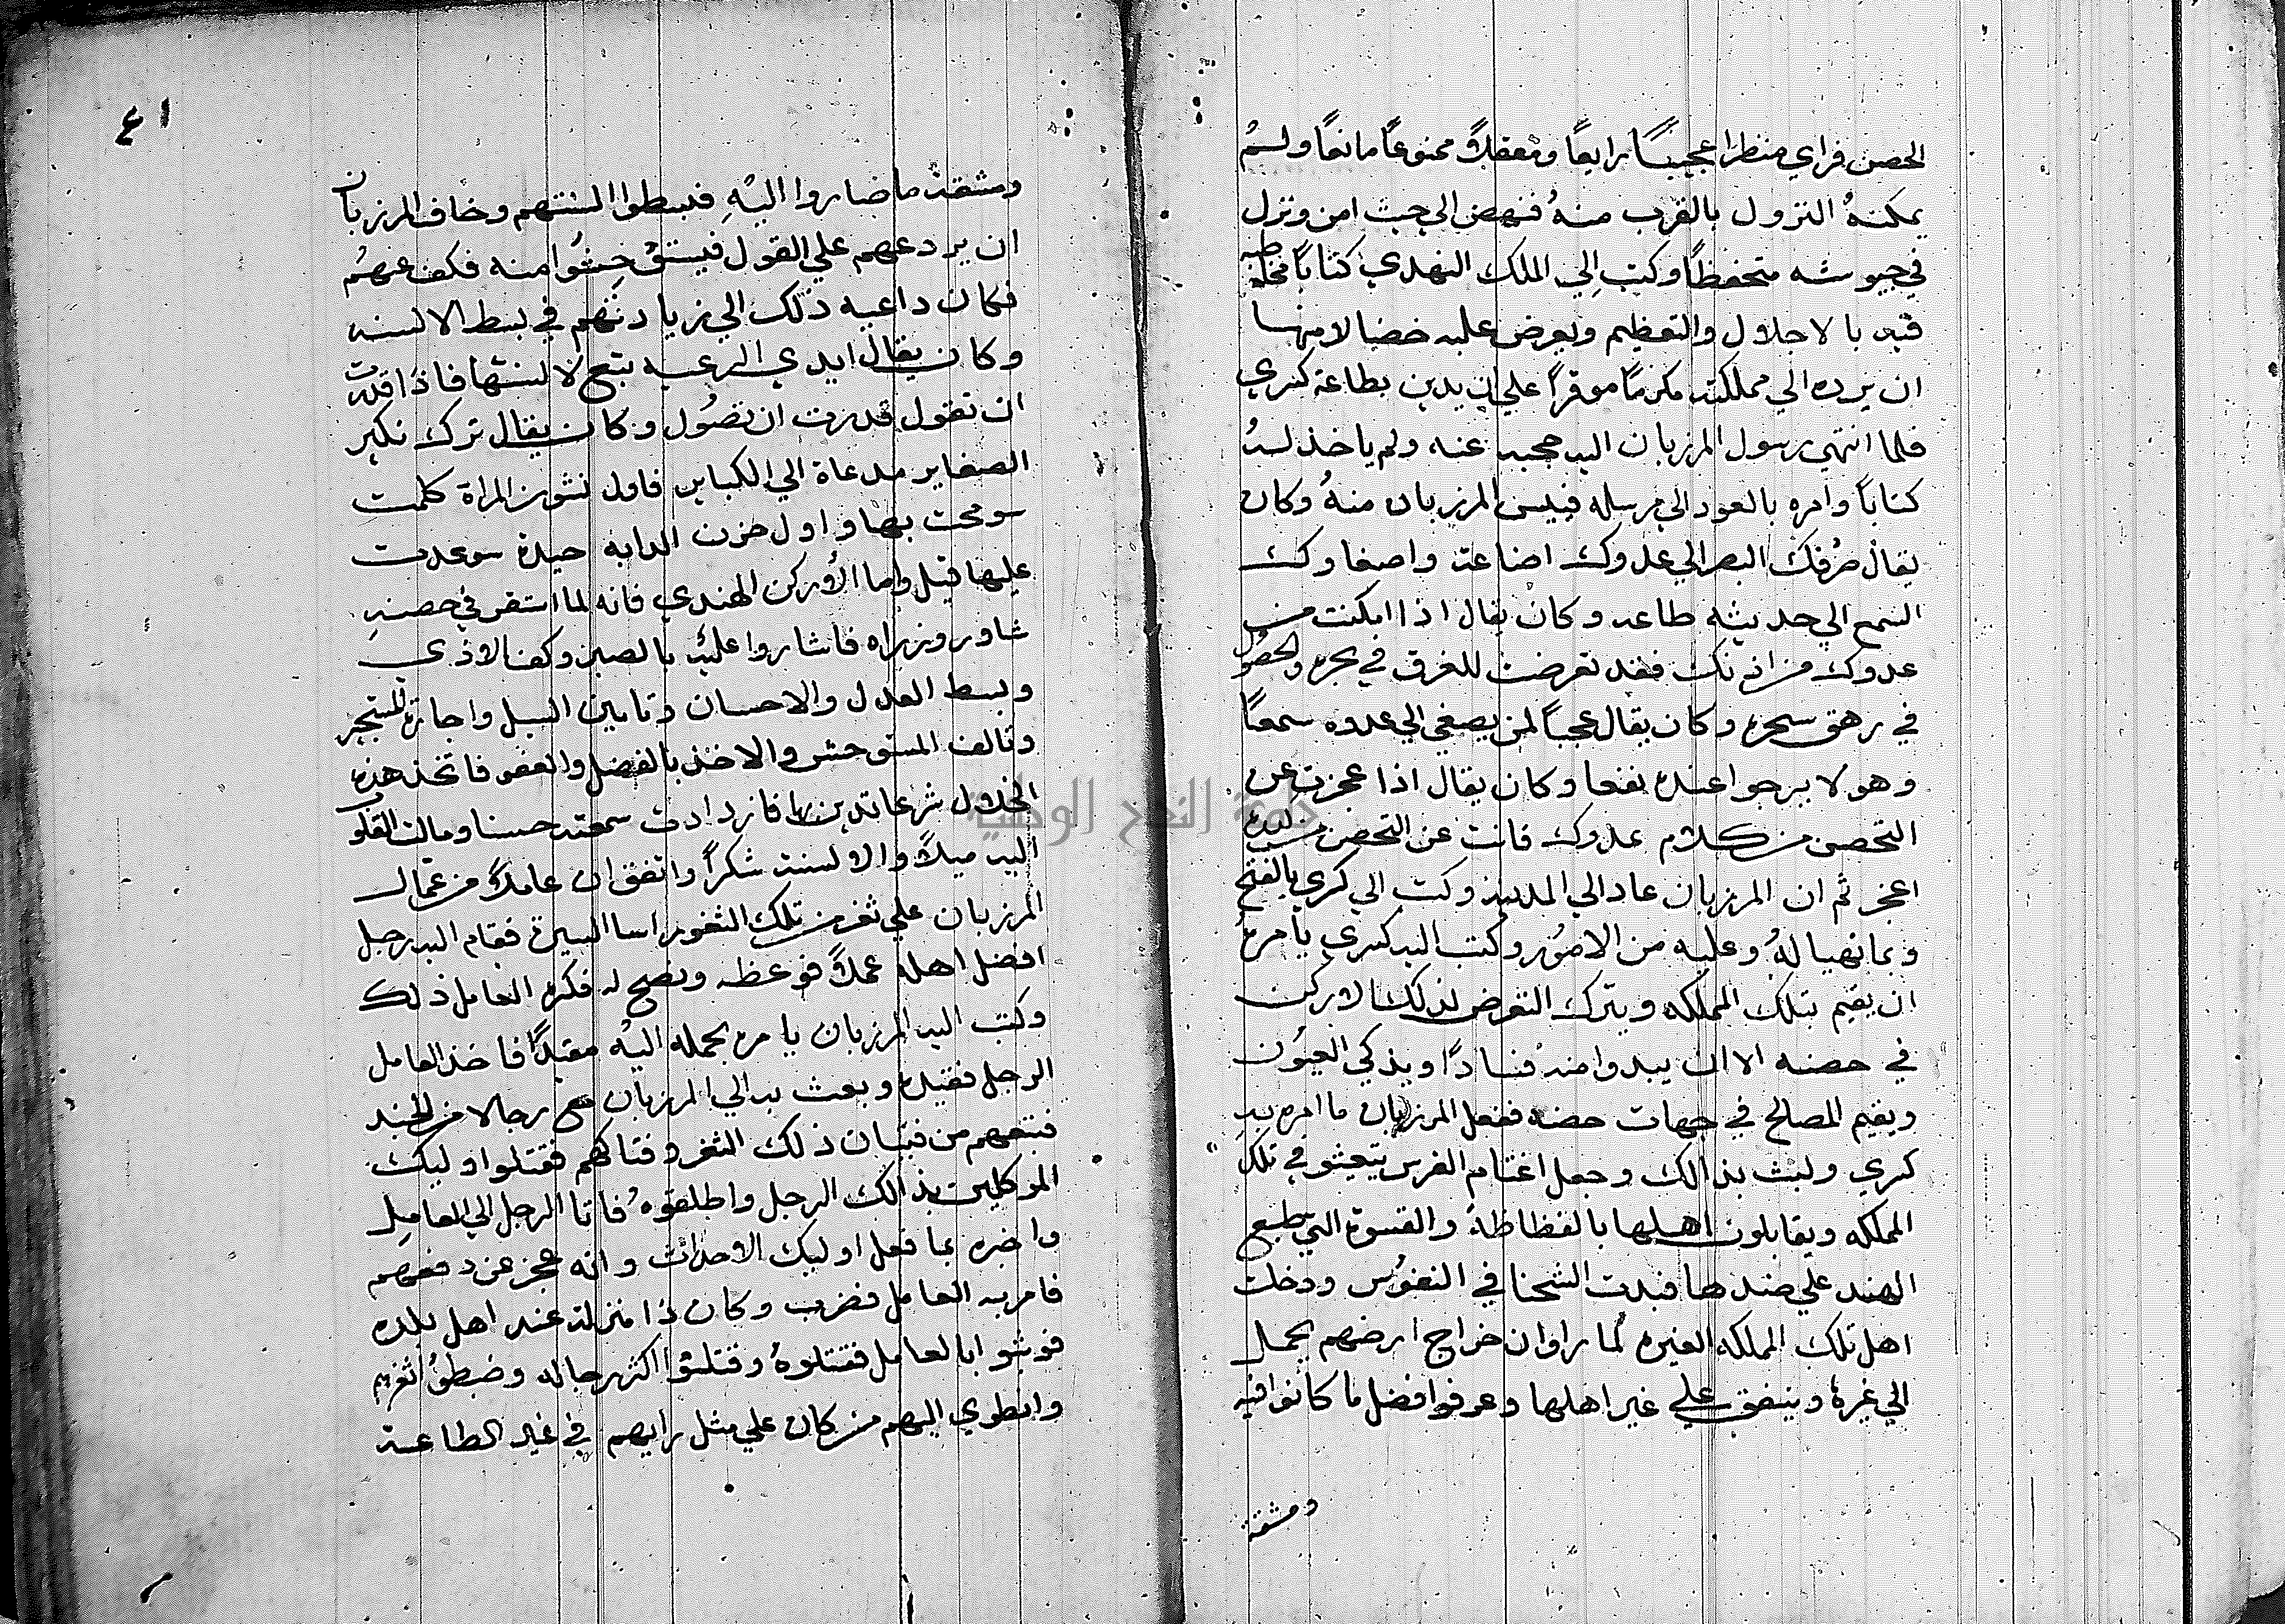 الحصن فراي منظرا عجيبًا رايعًا ومعقلاً ممنوعًا مانعًا ولم
يمكنهُ النزول بالقرب منهُ فنهض الي حيث امن ونزل
في جيوشه متحفظًا وكتب الي الملك الهندي كتابًا خاطبه
فيه بالاجلال والتعظيم ويعرض عليه خصالا منها
ان يرده الي مملكته مكرمًا موقرًا علي ان يدين بطاعة كسري
فلما انتهي رسول المرزبان اليه حجبه عنه ولم ياخذ لهُ
كتابًا وامره بالعود الي مرسله فييس المرزبان منهُ وكان
يقال صرفك البصر الي عدوك اضاعة واصغاوك
السمع الي حديثه طاعه وكان يقال اذا امكنت من
عدوك من اذنك فقد تعرضت للغرق في بحره والحصول
في رهق سحره وكان يقال عجبًا لمن يصغي الي عدوه سمعًا
وهو لا يرجوا عنده نفعا وكان يقال اذا عجزت عن
التحصن من كلام عدوك فانت عن التحصن من كيده
اعجز ثم ان المرزبان عاد الي المدينه وكتب الي كسري بالفتح
وبما تهيا لهُ وعليه من الامور وكتب اليه كسري يامرهُ
ان يقيم بتلك المملكه ويترك التعرض لذلك الاركن
في حصنه الا ان يبدوا منه فسادًا ويذكي العيون
ويقيم المصالح في جهات حصنه ففعل المرزبان ما امره به
كسري ولبث بذالك وجعل اغتام الفرس يتعيثو في تلك
المملكه ويقابلون اهلها بالفظاظة والقسوة التي طبع
الهند علي ضدها فبدت الشحنا في النفوس ودخلت
اهل تلك المملكه الغيره لما راوا ان خراج ارضهم يحمل
الي غيره وينفق علي غير اهلها وعرفوا فضل ما كانوا فيه
ومشقة
٤١
ومشقة ما صاروا اليهِ فبسطوا السنتهم وخاف المرزبان
ان يردعهم علي القول فيستوحشُوا منه فكف عنهُم
فكان داعيه ذلك الي زيادتهم في بسط الالسنه
وكان يقال ايدي الرعيه تبع لالسنتها فاذا قدرت
ان تقول قدرت ان تصُول وكان يقال ترك نكير
الصغاير مدعاة الي الكباير فاول نشوز المراة كلمت
سومحت بها واول حزن الدابه حيدة سوعدت
عليها قيل واما الاُركن الهندي فانه لما استقر في حصنهِ
شاور وزراه فاشاروا عليه بالصبر وكف الاذي
وبسط العدل والاحسان وتامين السبل واجارة المستجير
وتالف المستوحش والاخذ بالفضل والعفو فاتخذ هذه
الخلال شرعا تدين بها فازدادت سمعته حسنا ومالت القلوب
اليه ميلاً والالسنة شكرًا واتفق ان عاملاً من عمال
المرزبان علي ثغر من تلك الثغور اسا السيرة فقام اليه رجل
افضل اهله عملاً فوعظه ونصح له فكره العامل ذلك
وكتب اليه المرزبان يامره بحمله اليهُ مقيدًا فاخذ العامل
الرجل فقيده وبعث به الي المرزبان مع رجالا من الجند
فتبعهم من فتيان ذلك الثغر وفتاكهم فقتلوا اوليك
الموكلين بذالك الرجل واطلقوهُ فاتا الرجل الي العامل
واخبره بما فعل اوليك الاحداث وانه عجز عن دفعهم
فامر به العامل فضرب وكان ذا منزلة عند اهل بلده
فوثبوا بالعامل فقتلوهُ وقتلُوا اكثر رجاله وضبطوُا ثغرهم
وانطوي اليهم من كان علي مثل رايهم في غير الطاعة